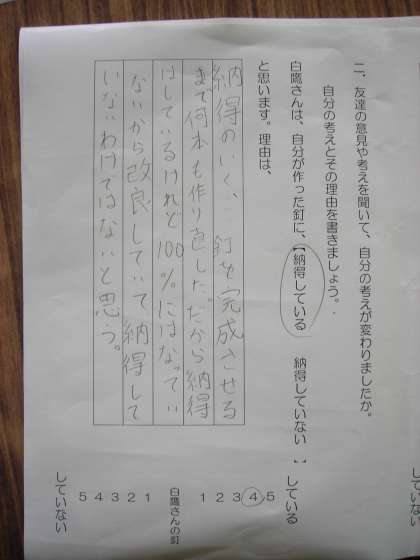 二、友達の意見や考えを聞いて、自分の考えが変わりましたか。
自分の考えとその理由を書きましょう。
白鷹さんは、自分が作った釘に、【納得している　納得していない】
と思います。理由は、
納得のいく、釘を完成させる
まで何本も作り直した。だから納得
はしているけれど100％にはなってい
ないから改良していて納得して
いないわけではないと思う。
している
5 4 3 2 1
白鷹さんの釘
1 2 3 4 5
していない